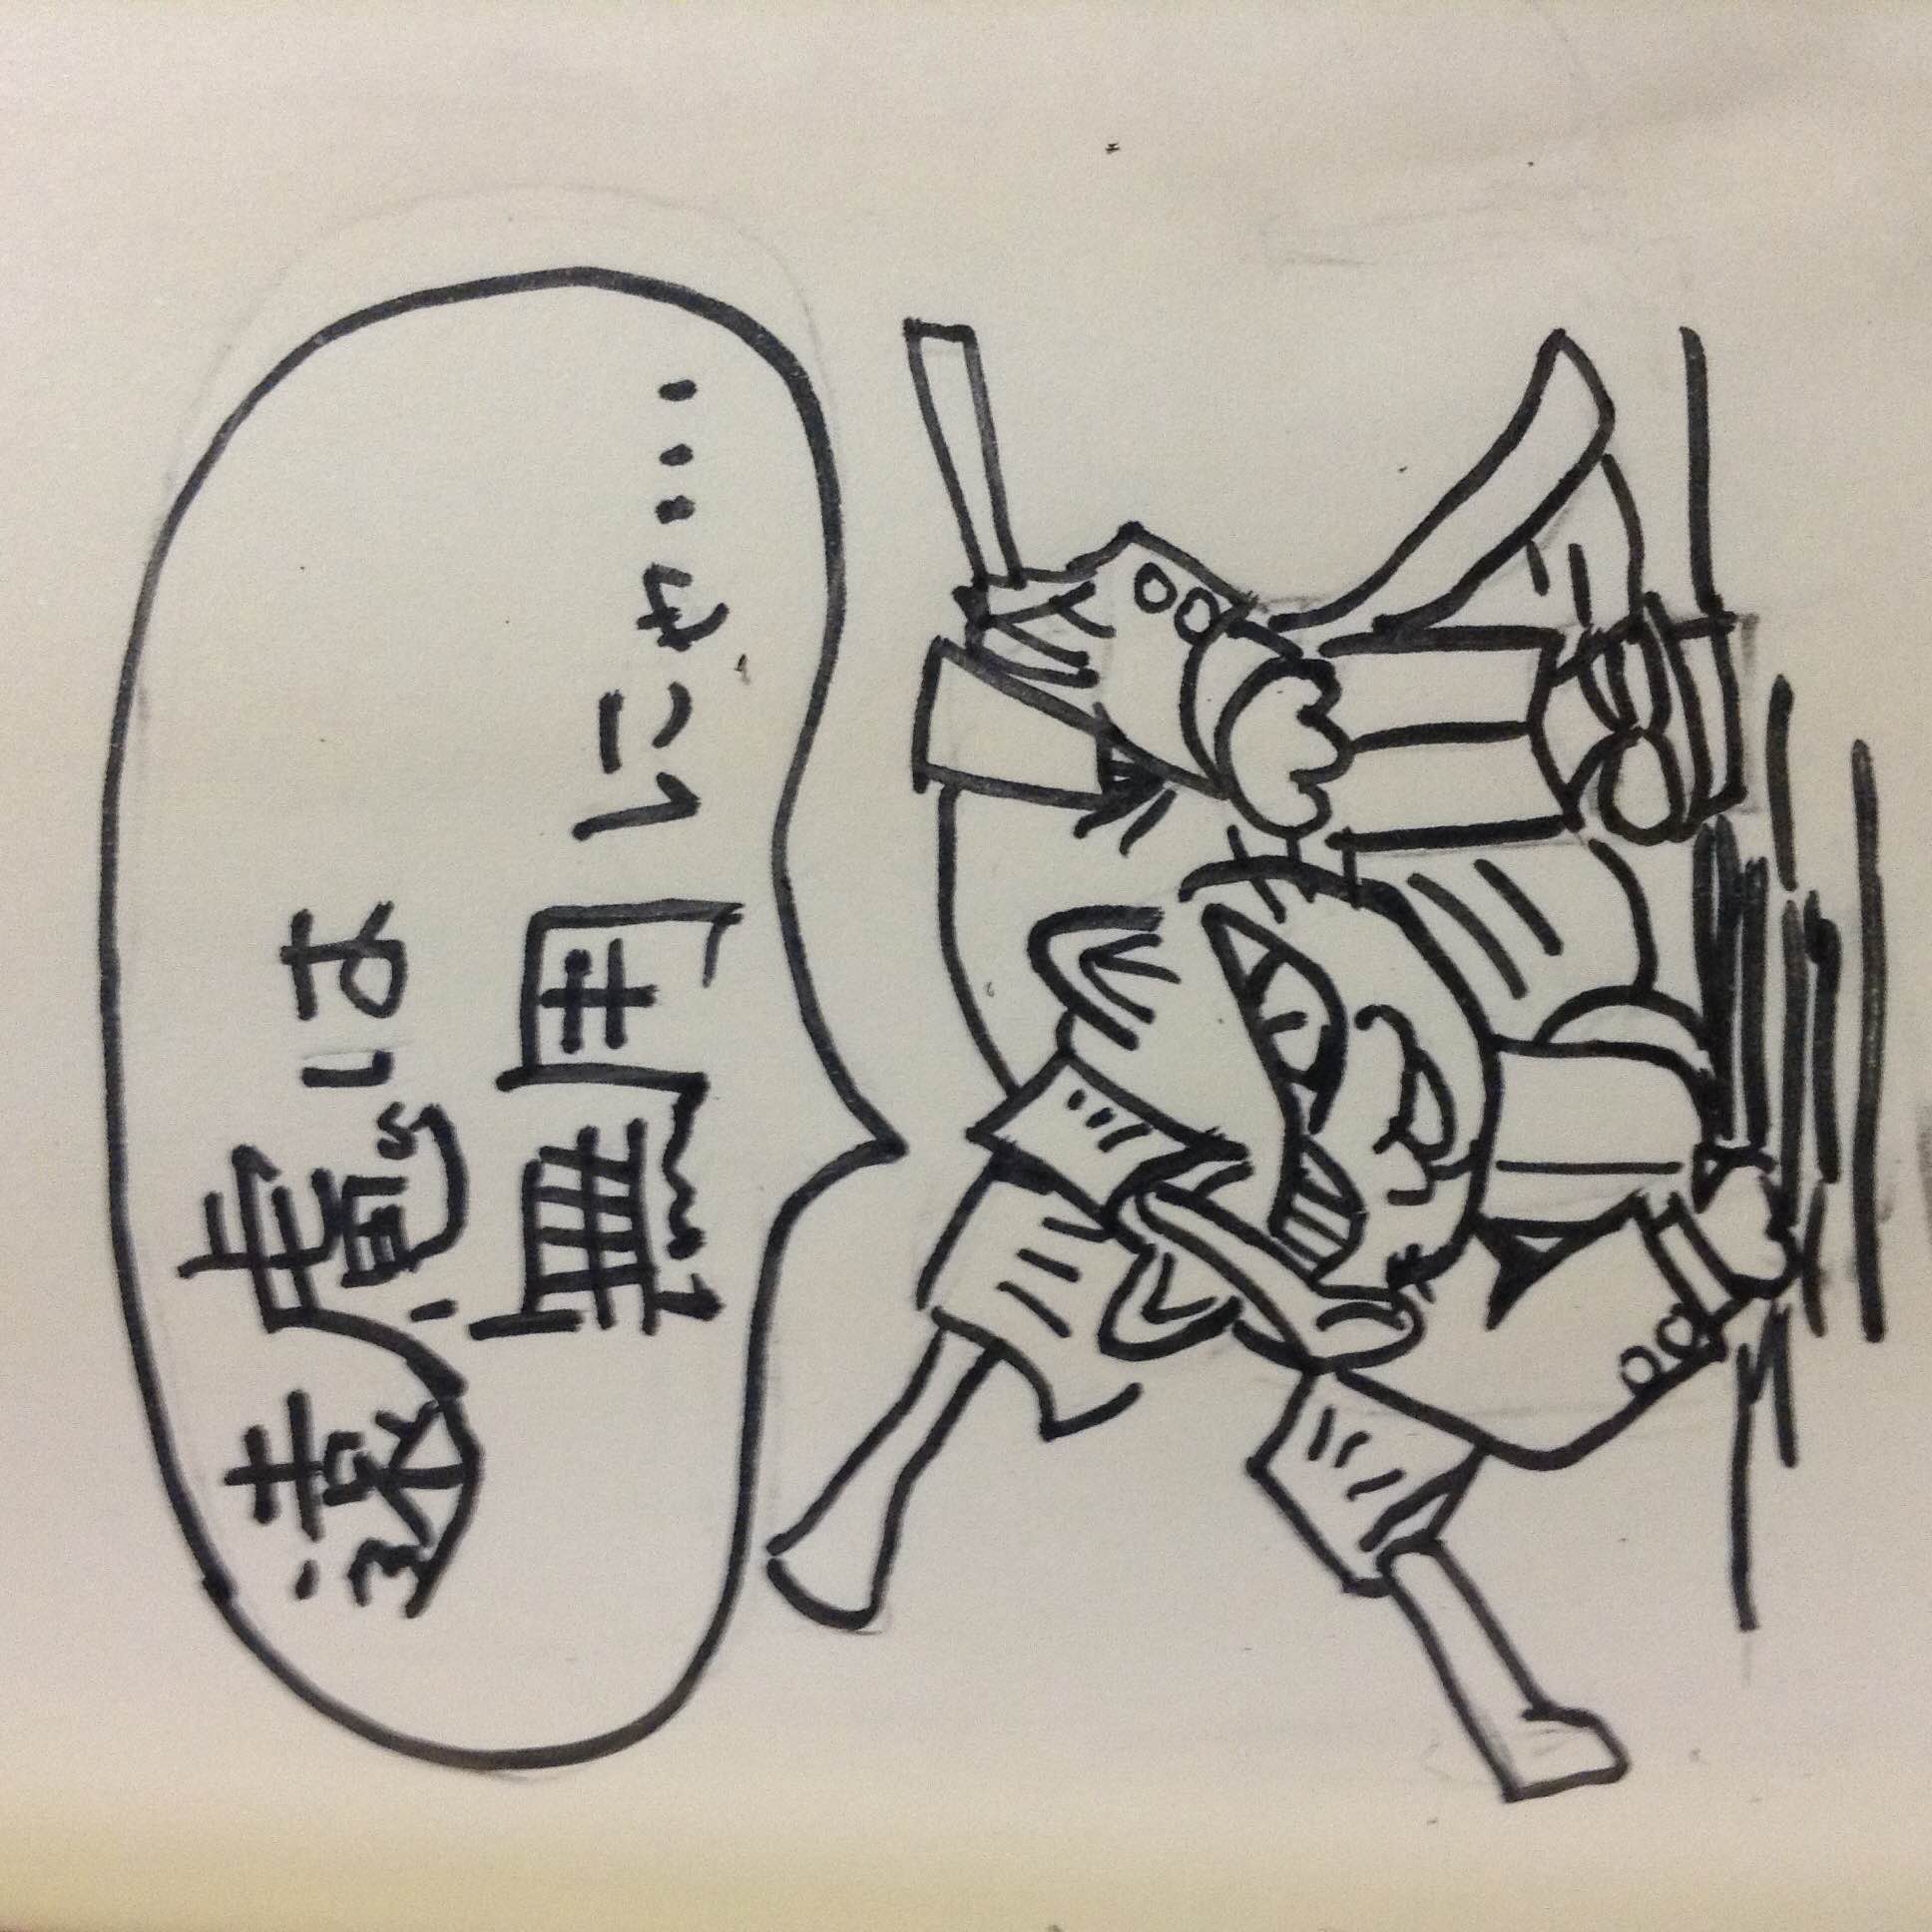 遠慮は
無用にゃ・・・